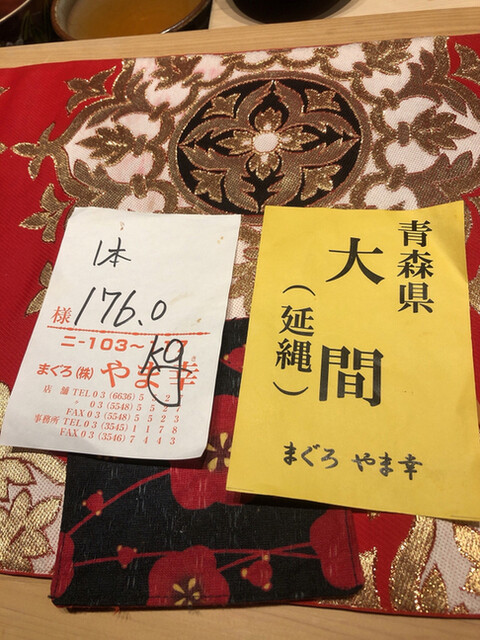 1本
様 176.0
kg
二-103~
まぐろ(株)やま幸
店舗 TEL 03(6636)5
〃 03(5548)552
FAX 03(5548)5523
事務所 TEL 03(3545)1178
FAX 03(3546)7443
青森県
大間
(延縄)
まぐろ やま幸